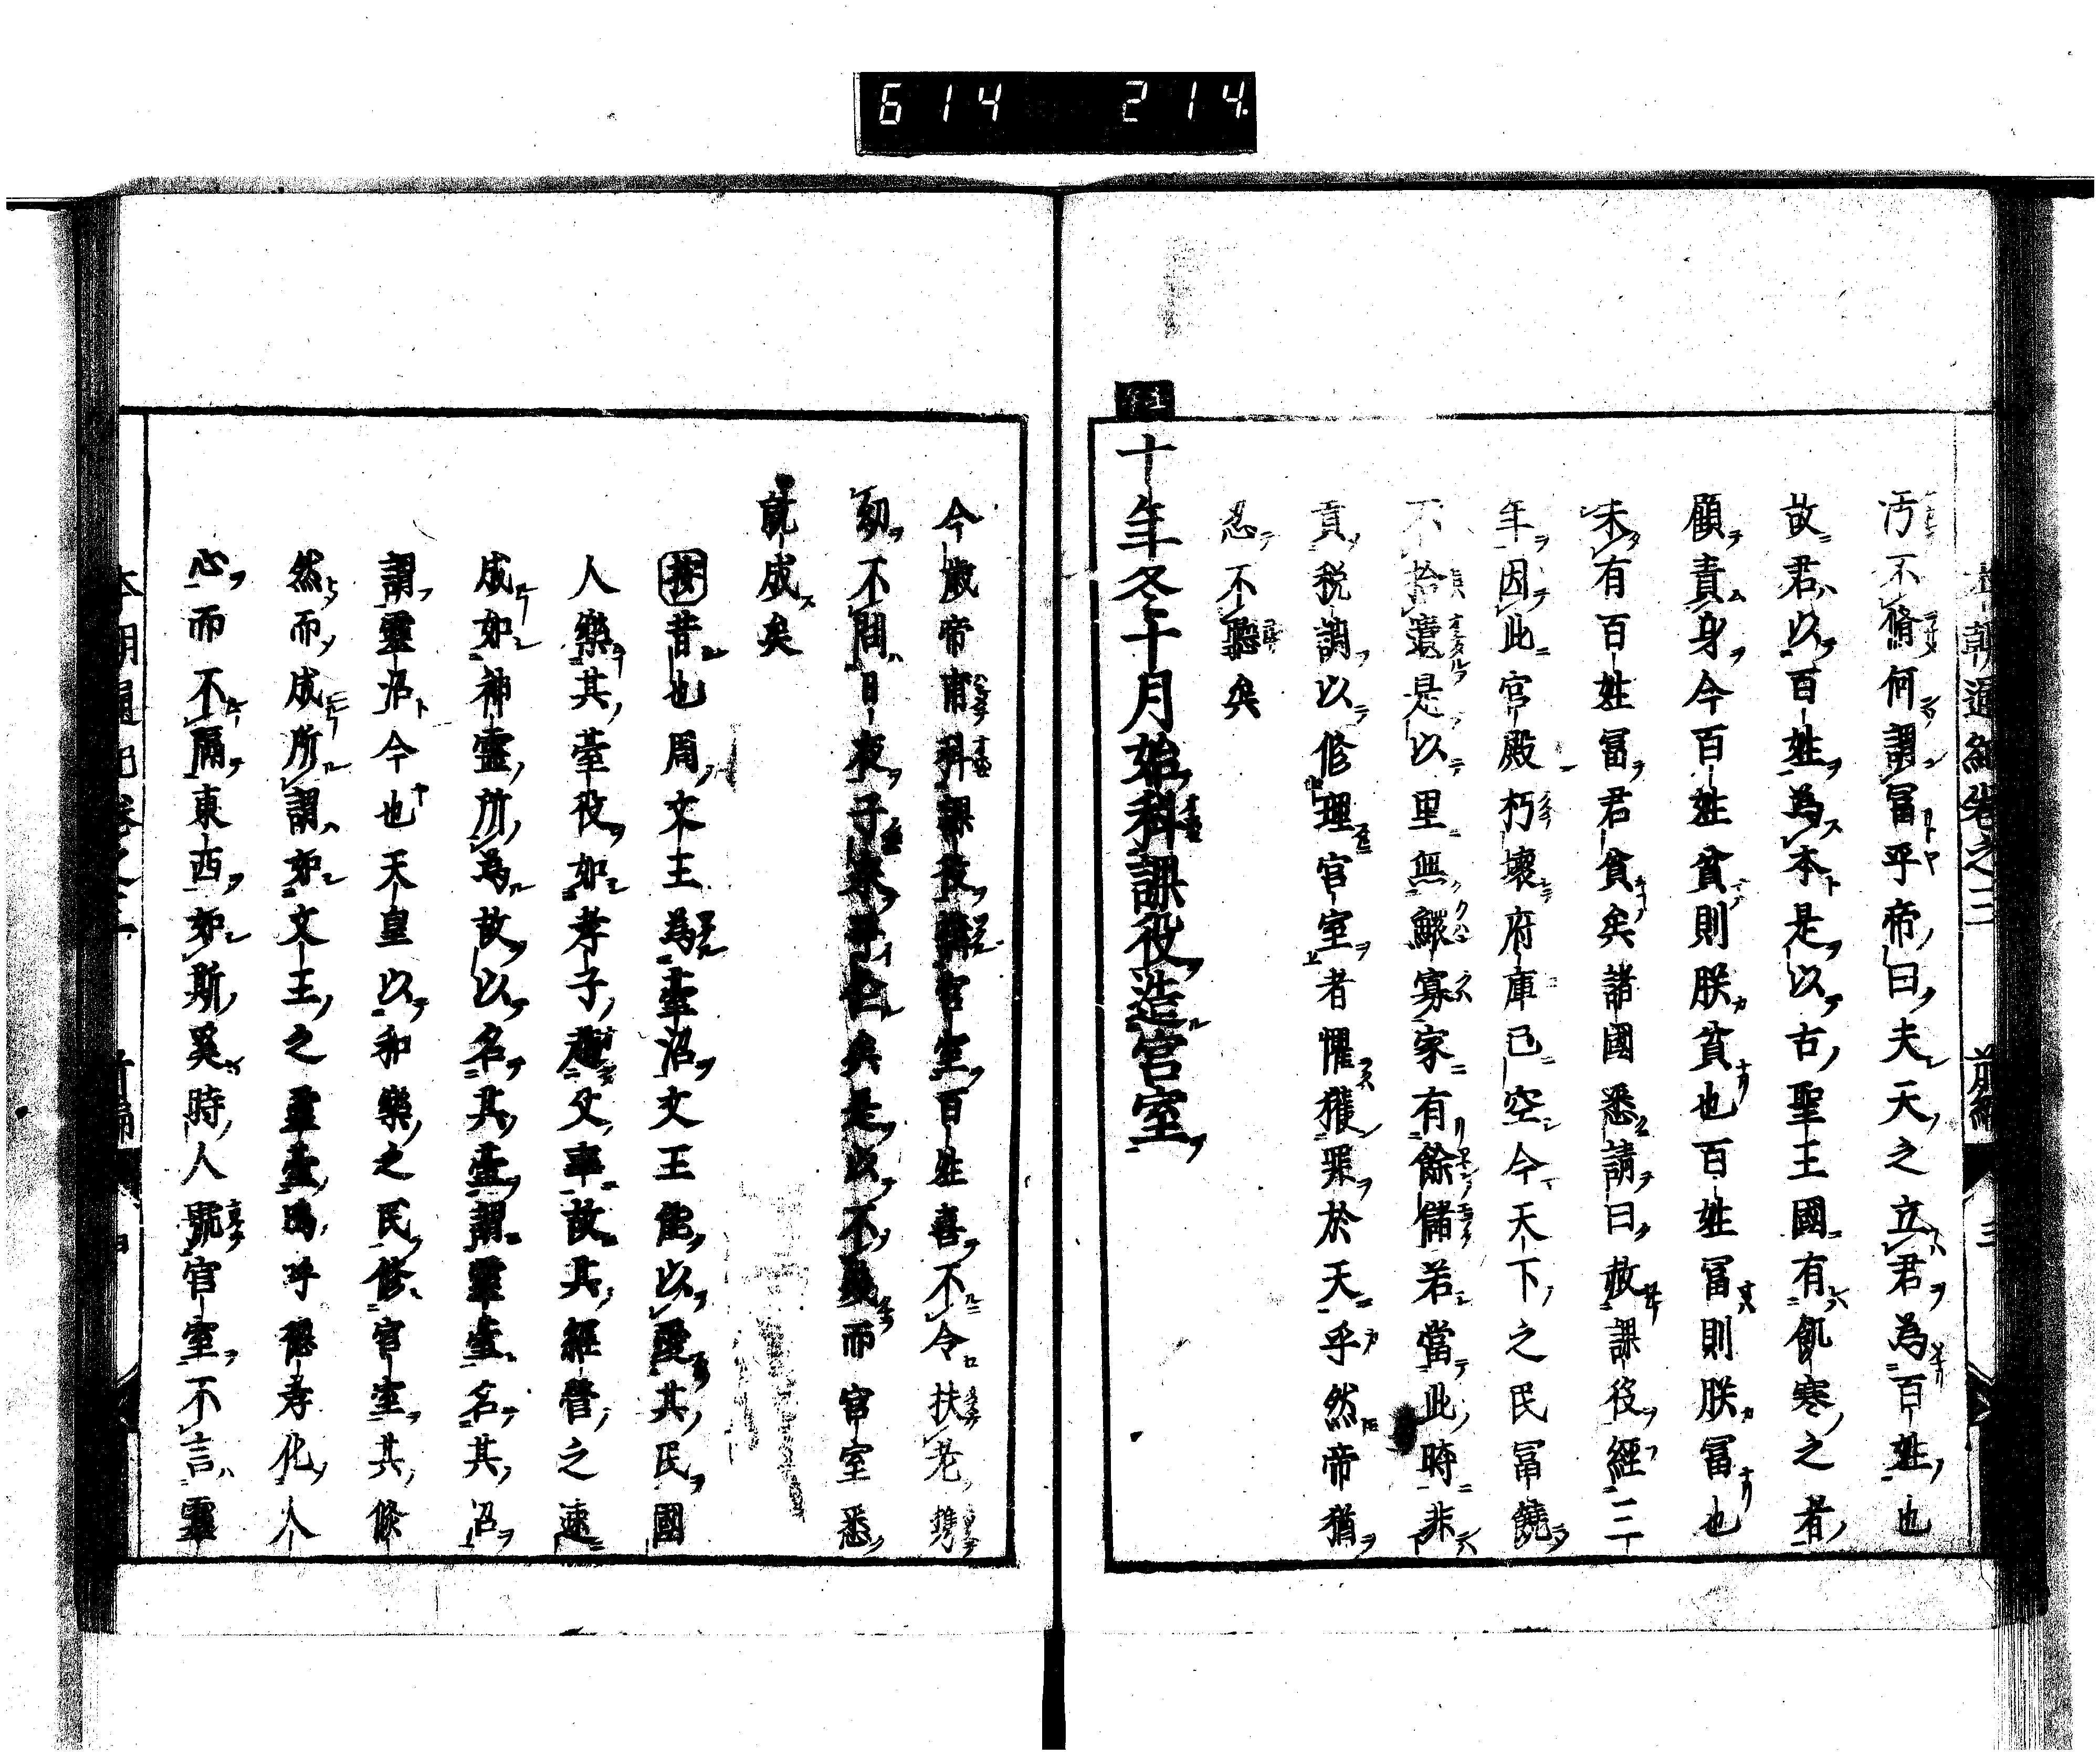 614 214
本朝通紀卷之三 前編 三
汚不脩何謂冨乎帝曰夫天之立君為百姓也
故君以百姓為本是以古聖王國有飢寒之者
顧責身今百姓貧則朕貧也百姓冨則朕冨也
未有百姓冨君貧矣諸國悉請曰赦課役經三
年因此宮殿朽壞府庫已空今天下之民冨饒
不拾遺是以里無鰥寡家有餘儲若當此時非
貢税調以修理宮室者懼獲罪於天乎然帝猶
忍不聽矣
十年冬十月始科課役造宮室
今歳帝甫科課役搆宮室百姓喜不令扶老携
幼不問日夜子來乎仕矣是以不幾而宮室悉
就成矣
按昔也周文王為臺沼文王能以愛其民國
人樂其臺役如孝子趨父事故其經營之速
成如神靈所為故以名其臺謂靈臺名其沼
謂靈沼今也天皇以和樂之民修宮室其倐
然而成所謂如文王之靈臺嗚呼德孝化人
心而不隔東西如斯奚時人號宮室不言靈
本朝通紀卷之三 前編